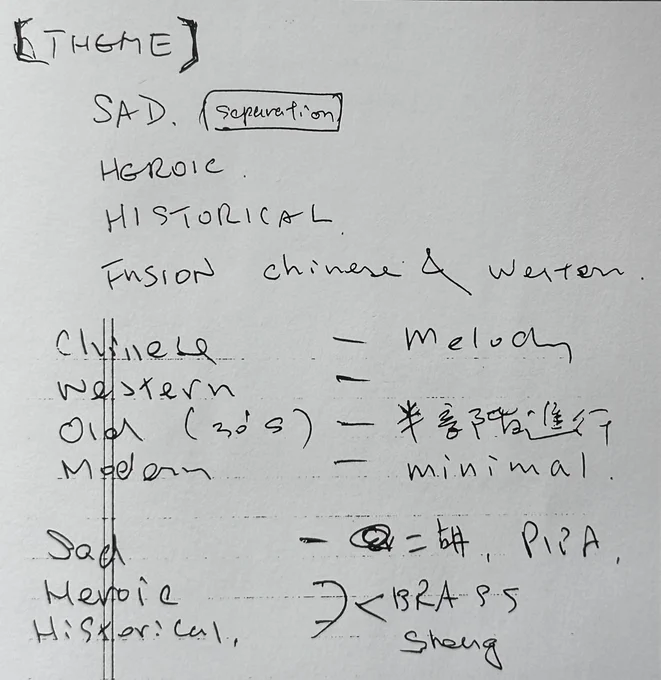 [THEME]
SAD. (separation)
HEROIC.
HISTORICAL.
FUSION chinese & western.
Chinese — Melody
Western —
Old (30's) — 半音階進行
Modern — minimal.
Sad — 二胡, PIPA,
Heroic < BRASS
Historical, Sheng